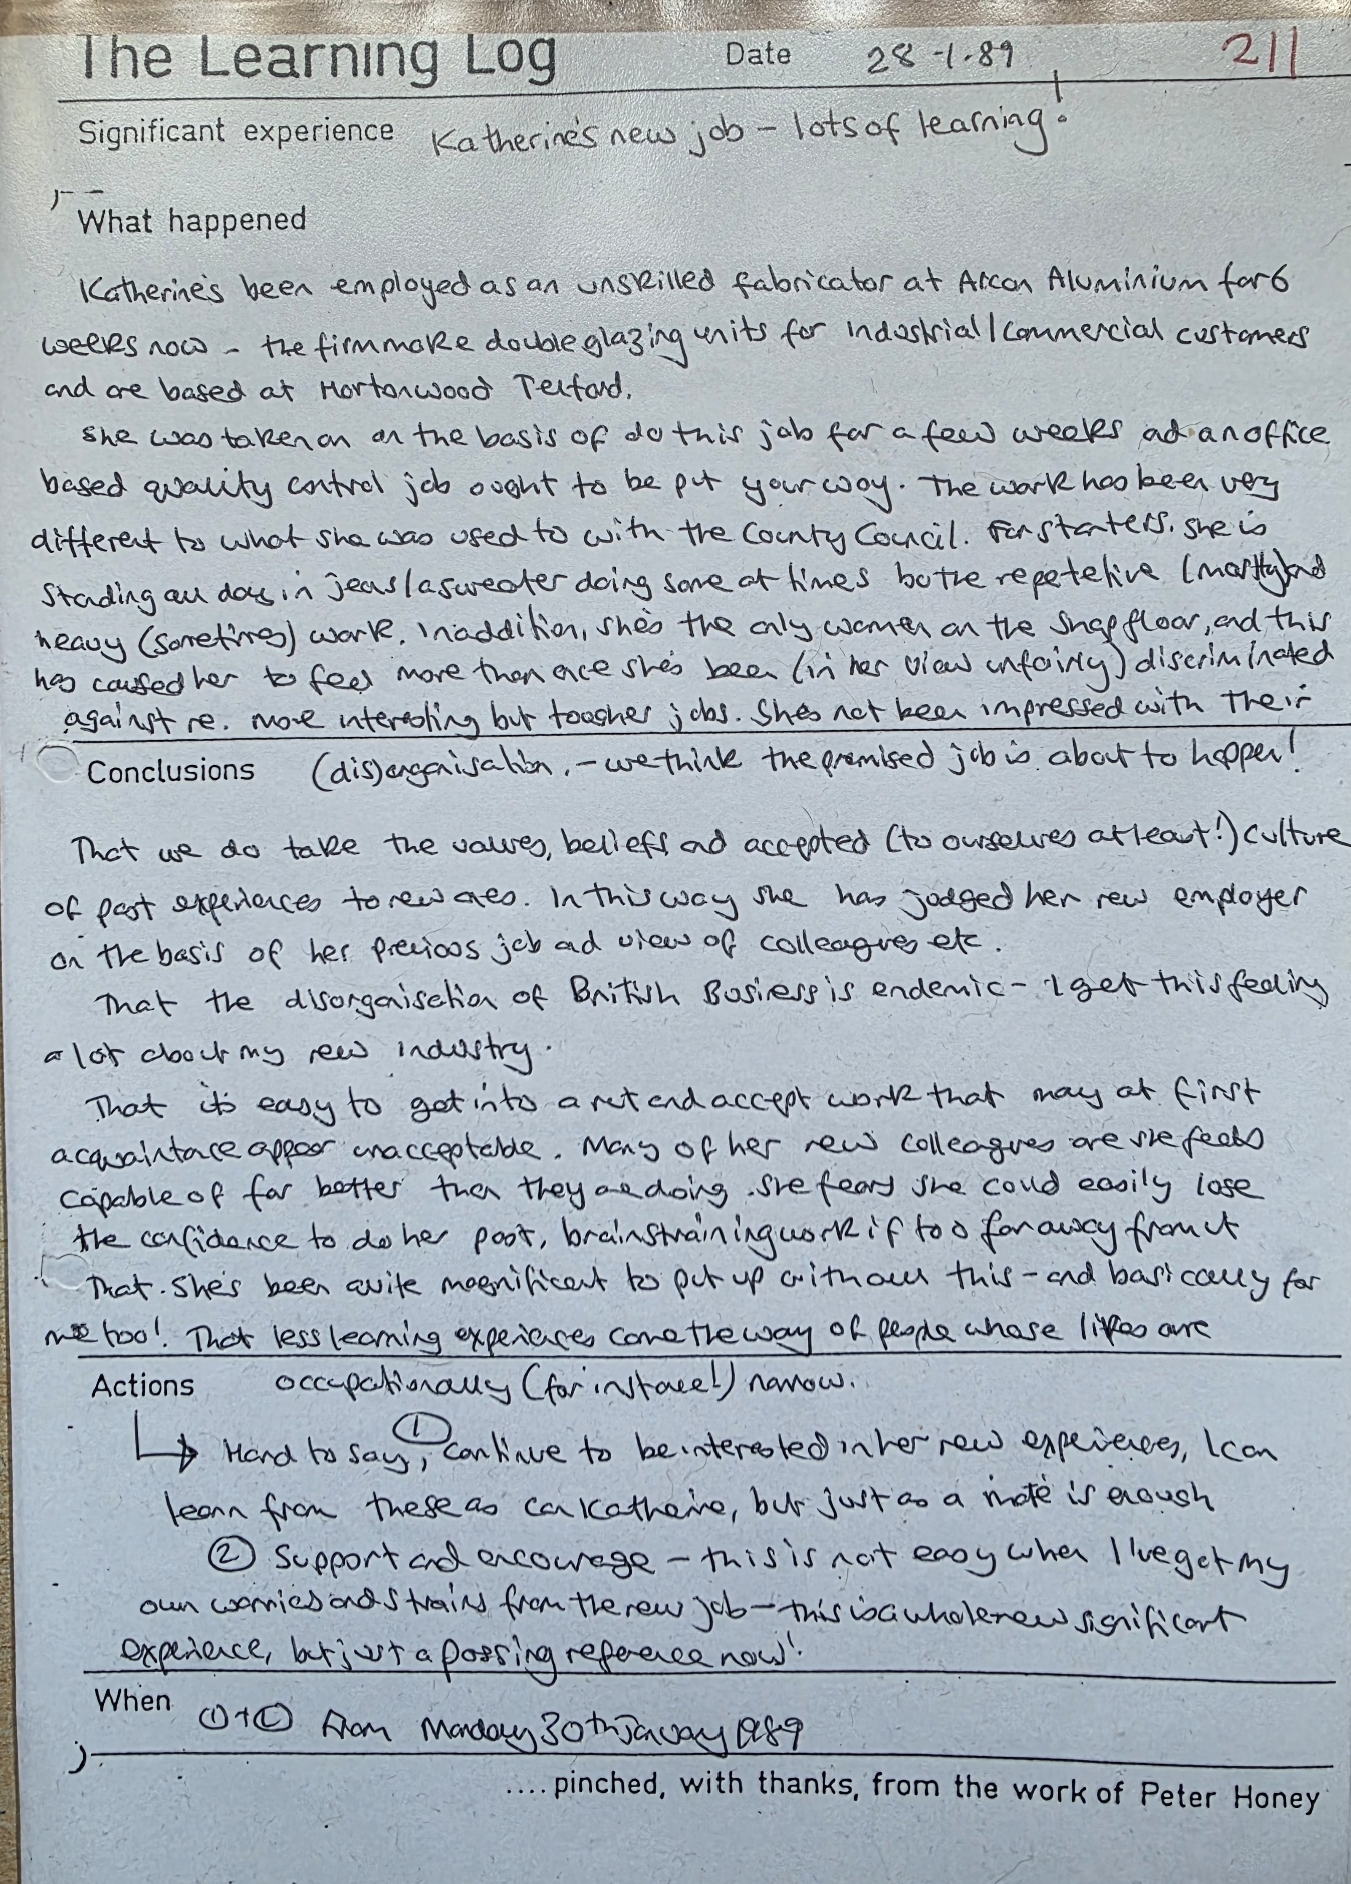 The Learning Log Date 28-1-89 211
Significant experience Katherine's new job - lots of learning!
What happened
Katherine's been employed as an unskilled fabricator at Arcon Aluminium for 6
weeks now - the firm make double glazing units for industrial/commercial customers
and are based at Hortonwood Telford.
She was taken on on the basis of do this job for a few weeks ad an office
based quality control job ought to be put your way. The work has been very
different to what she was used to with the County Council. For starters, she is
standing all day in jeans/a sweater doing some at times both repetetive (mostly) and
heavy (sometimes) work. In addition, she's the only women on the shop floor, and this
has caused her to feel more than once she's been (in her view unfairly) discriminated
against re. more interesting but tougher jobs. She's not been impressed with their
Conclusions (dis)organisation. - we think the promised job is about to happen!
That we do take the values, beliefs and accepted (to ourselves at least!) culture
of past experiences to new ones. In this way she has judged her new employer
on the basis of her previous job and view of colleagues etc.
That the disorganisation of British Business is endemic - I get this feeling
a lot about my new industry.
That it's easy to get into a rut and accept work that may at first
acquaintance appear unacceptable. Many of her new colleagues are she feels
capable of far better than they are doing. She fears she could easily lose
the confidence to do her past, brainstraining work if too far away from it
That. She's been quite magnificent to put up with all this - and basically for
me too! That less learning experiences come the way of people whose lifes are
Actions occupationally (for instance!) narrow.
Hard to say, ① continue to be interested in her new experiences, I can
learn from these as can Katherine, but just as a mate is enough
② Support and encourage - this is not easy when I've got my
own worries and strains from the new job - this is a whole new significant
experience, but just a passing reference now!
When ① + ② From Monday 30th January 1989
.... pinched, with thanks, from the work of Peter Honey